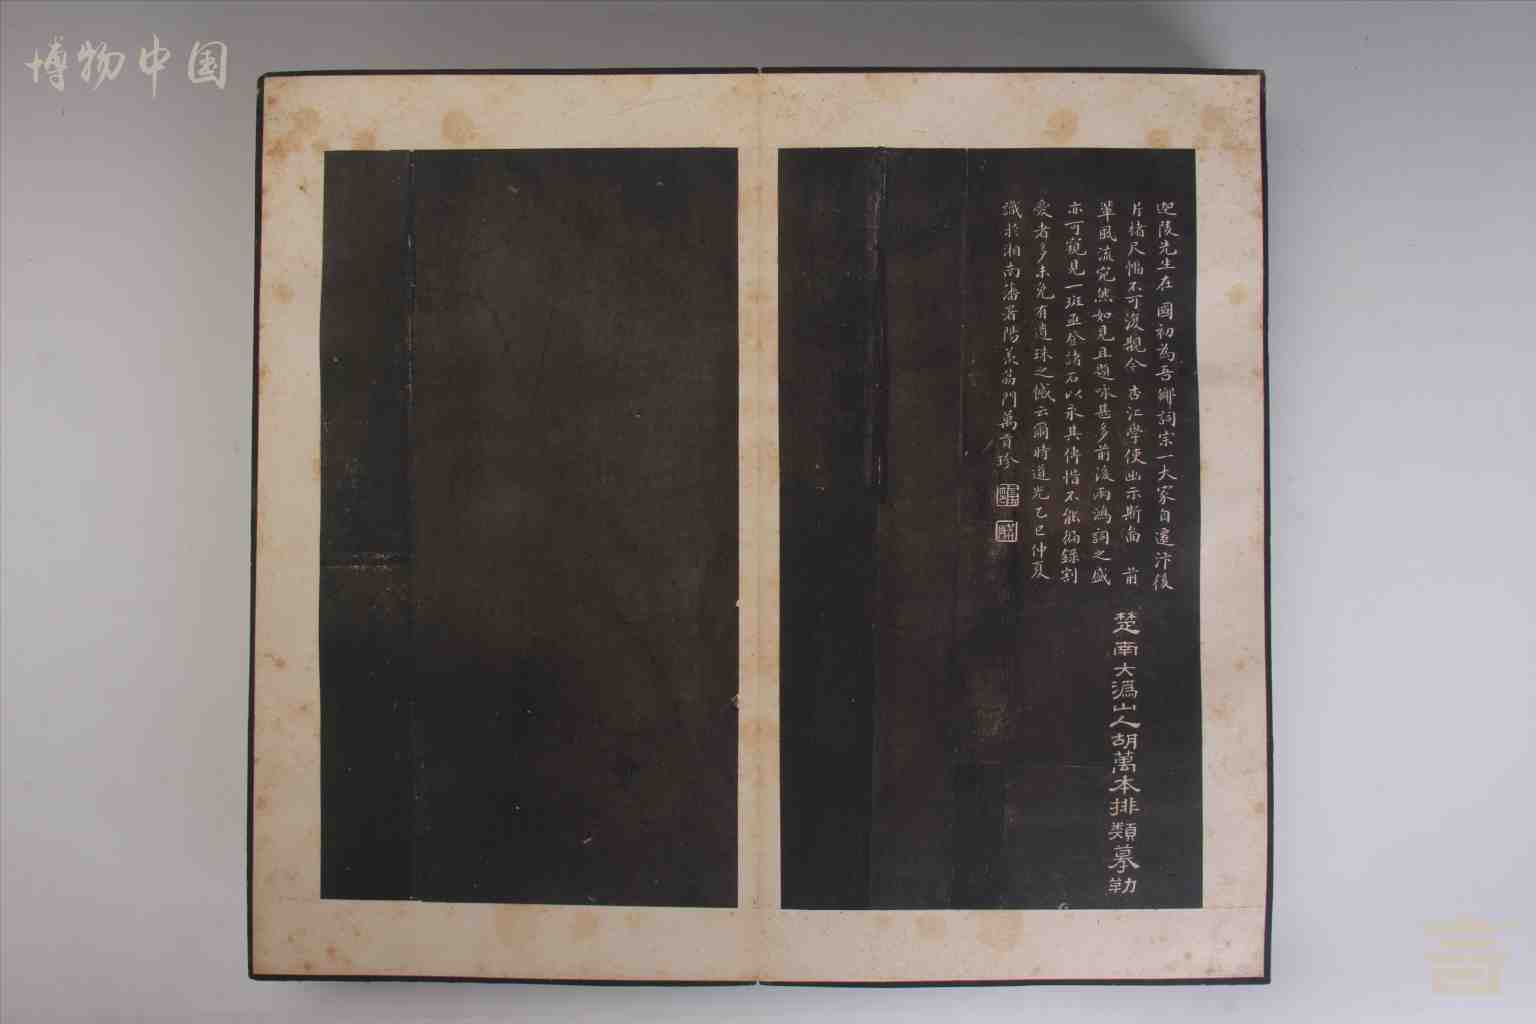 博物中国
迦陵先生在 國初為吾鄉詞宗一大家自遷汴後
片楮尺幅不可復覩今 杏江學使出示斯面 前
輩風流宛然如見且題咏甚多前後兩鴻詞之盛
亦可窺見一斑亟登諸石以永其傳惜不能徧錄割
愛者多未免有遺珠之憾云爾時道光乙巳仲夏
識於湘南藩署陽羨荔門萬貢珍
楚南大溈山人胡萬本排類摹勒